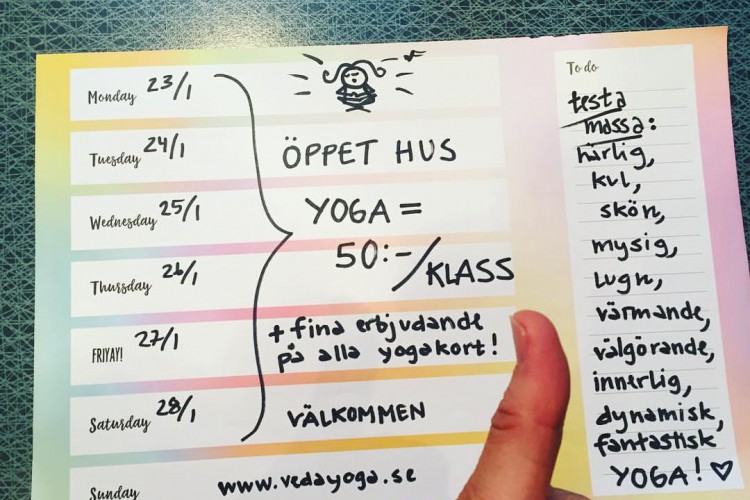 Monday 23/1
Tuesday 24/1
Wednesday 25/1
Thursday 26/1
FRIYAY! 27/1
Saturday 28/1
Sunday
ÖPPET HUS
YOGA =
50:-/KLASS
+ fina erbjudande
på alla yogakort!
VÄLKOMMEN
www.vedayoga.se
To do
testa
massa:
härlig,
kul,
skön,
mysig,
lugn,
värmande,
välgörande,
innerlig,
dynamisk,
fantastisk
YOGA! ♡